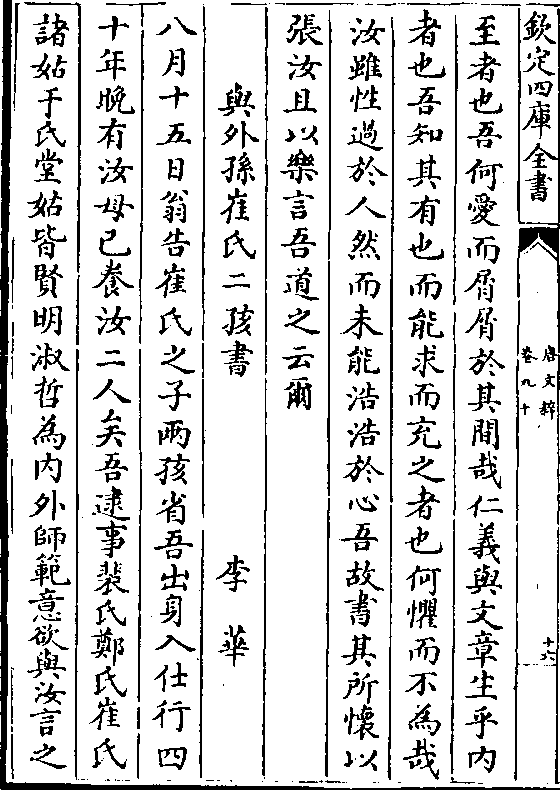 欽定四庫全書
唐文粹
卷九十
十六
至者也吾何愛而屑屑於其間哉仁義與文章生乎内
者也吾知其有也而能求而充之者也何懼而不為哉
汝雖性過於人然而未能浩浩於心吾故書其所懷以
張汝且以樂言吾道之云爾
與外孫崔氏二孩書 李華
八月十五日翁告崔氏之子兩孩省吾出身入仕行四
十年晚有汝母已養汝二人矣吾逮事裴氏鄭氏崔氏
諸姑于氏堂姑皆賢明淑哲為内外師範意欲與汝言之